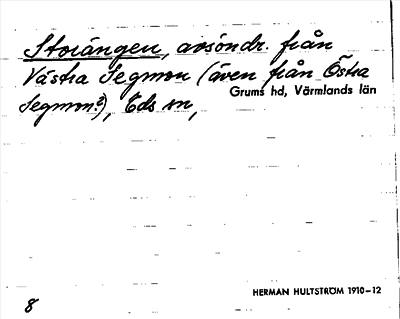 Storängen, avsöndr. från
Västra Segmon (även från Östra
Grums hd, Värmlands län
Segmon?), Eds sn,
HERMAN HULTSTRÖM 1910-12
8